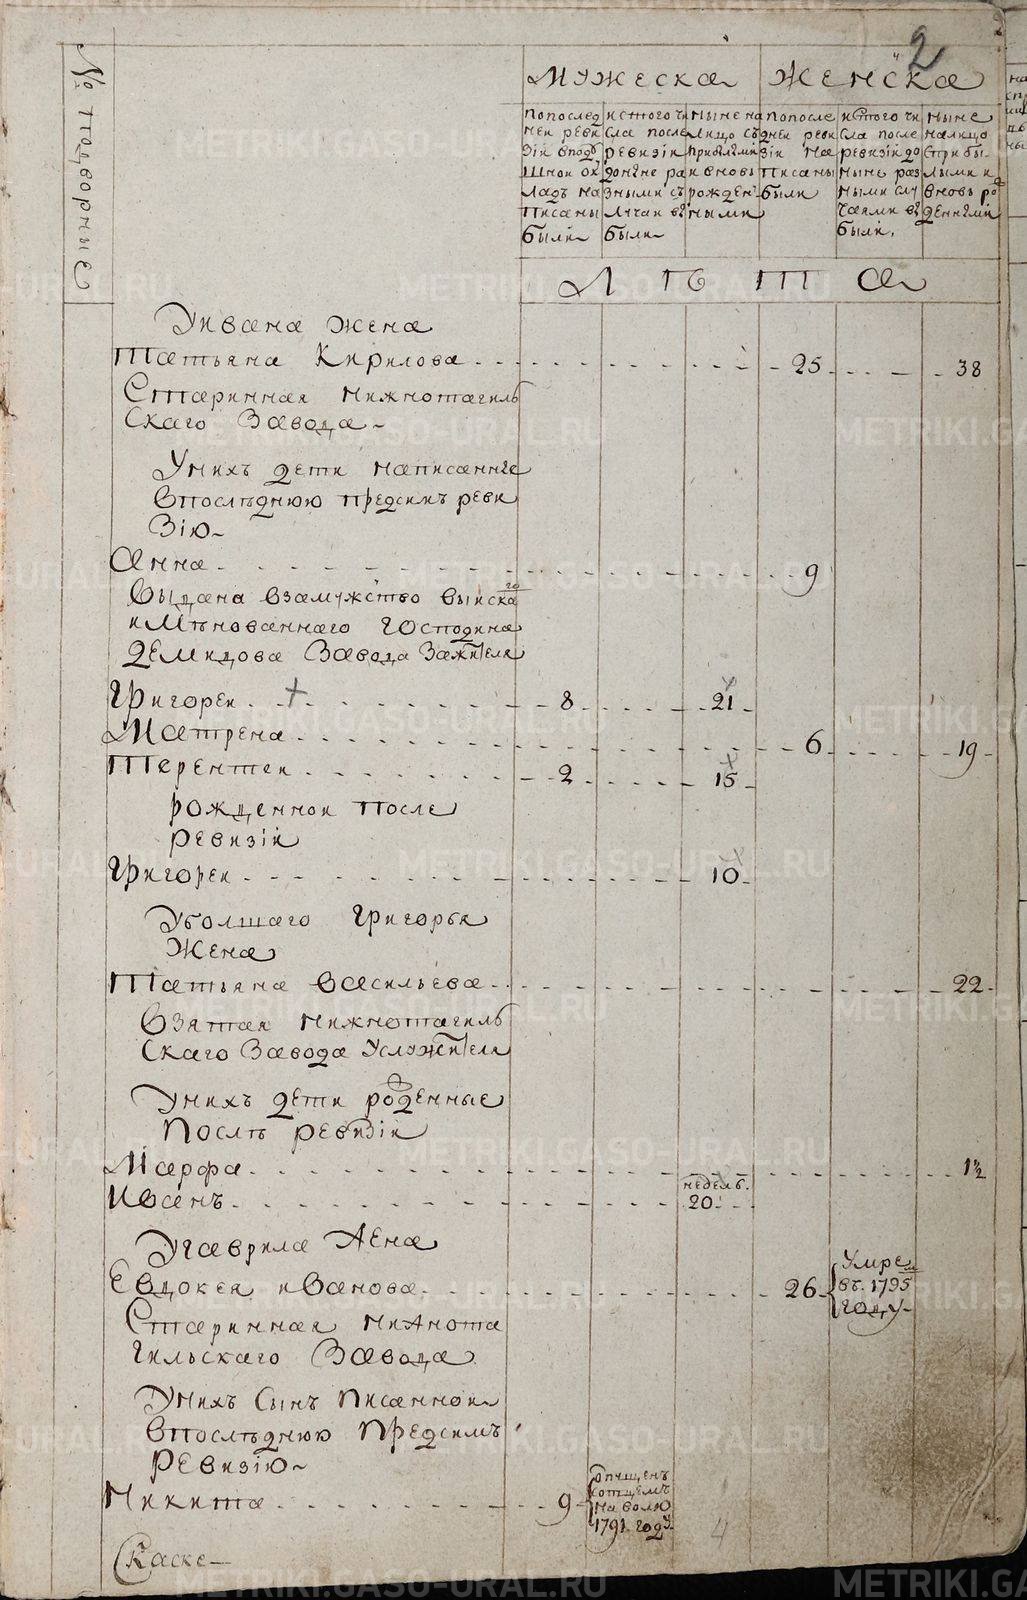 2
№ подворные
Мужеска Женска
попослед
ней реви
зiи вподу
шной ок
ладъ на
писаны
были
истого чи
сла после
ревизiи
доныне ра
зными съ
лучаи вы
были
ныне на
лицо съ
прибылыми
и вновь
рожден
ными
попосле
дней реви
зiи на
писаны
были
истого чи
сла после
ревизiи до
ныне раз
ными слу
чаями вы
были.
ныне
налицо
сприбы-
лыми и
вновь ро
жденными
Лѣта
Уивана жена
Татьяна Кирилова 25 38
Старинная нижнотагиль
скаго завода
Унихъ дети написанные
впослѣднюю предсимъ реви
зiю
Анна 9
выдана взамужство выиска
го
имѣнованнаго господина
демидова завода зажителя
Григореи + 8 21
Матрена 6 19
Терентеи 2 15
рожденнои после
ревизiи
Григореи 10
Уболшаго григорья
жена
Татьяна васильева 22
взятая нижнотагиль
скаго завода услужителя
Унихъ дети рожденные
послѣ ревизiи
Марфа 1½
недель.
Ивсенъ 20
Угаврила жена
Евдокея иванова 26
Умре
въ 1795
году
Старинная нижнота
гильскаго завода
Унихъ сынъ писаннои
впослѣднюю предсимъ
ревизiю
Никита 9
опущенъ
сотцемъ
на волю
1791 году
4
Каске